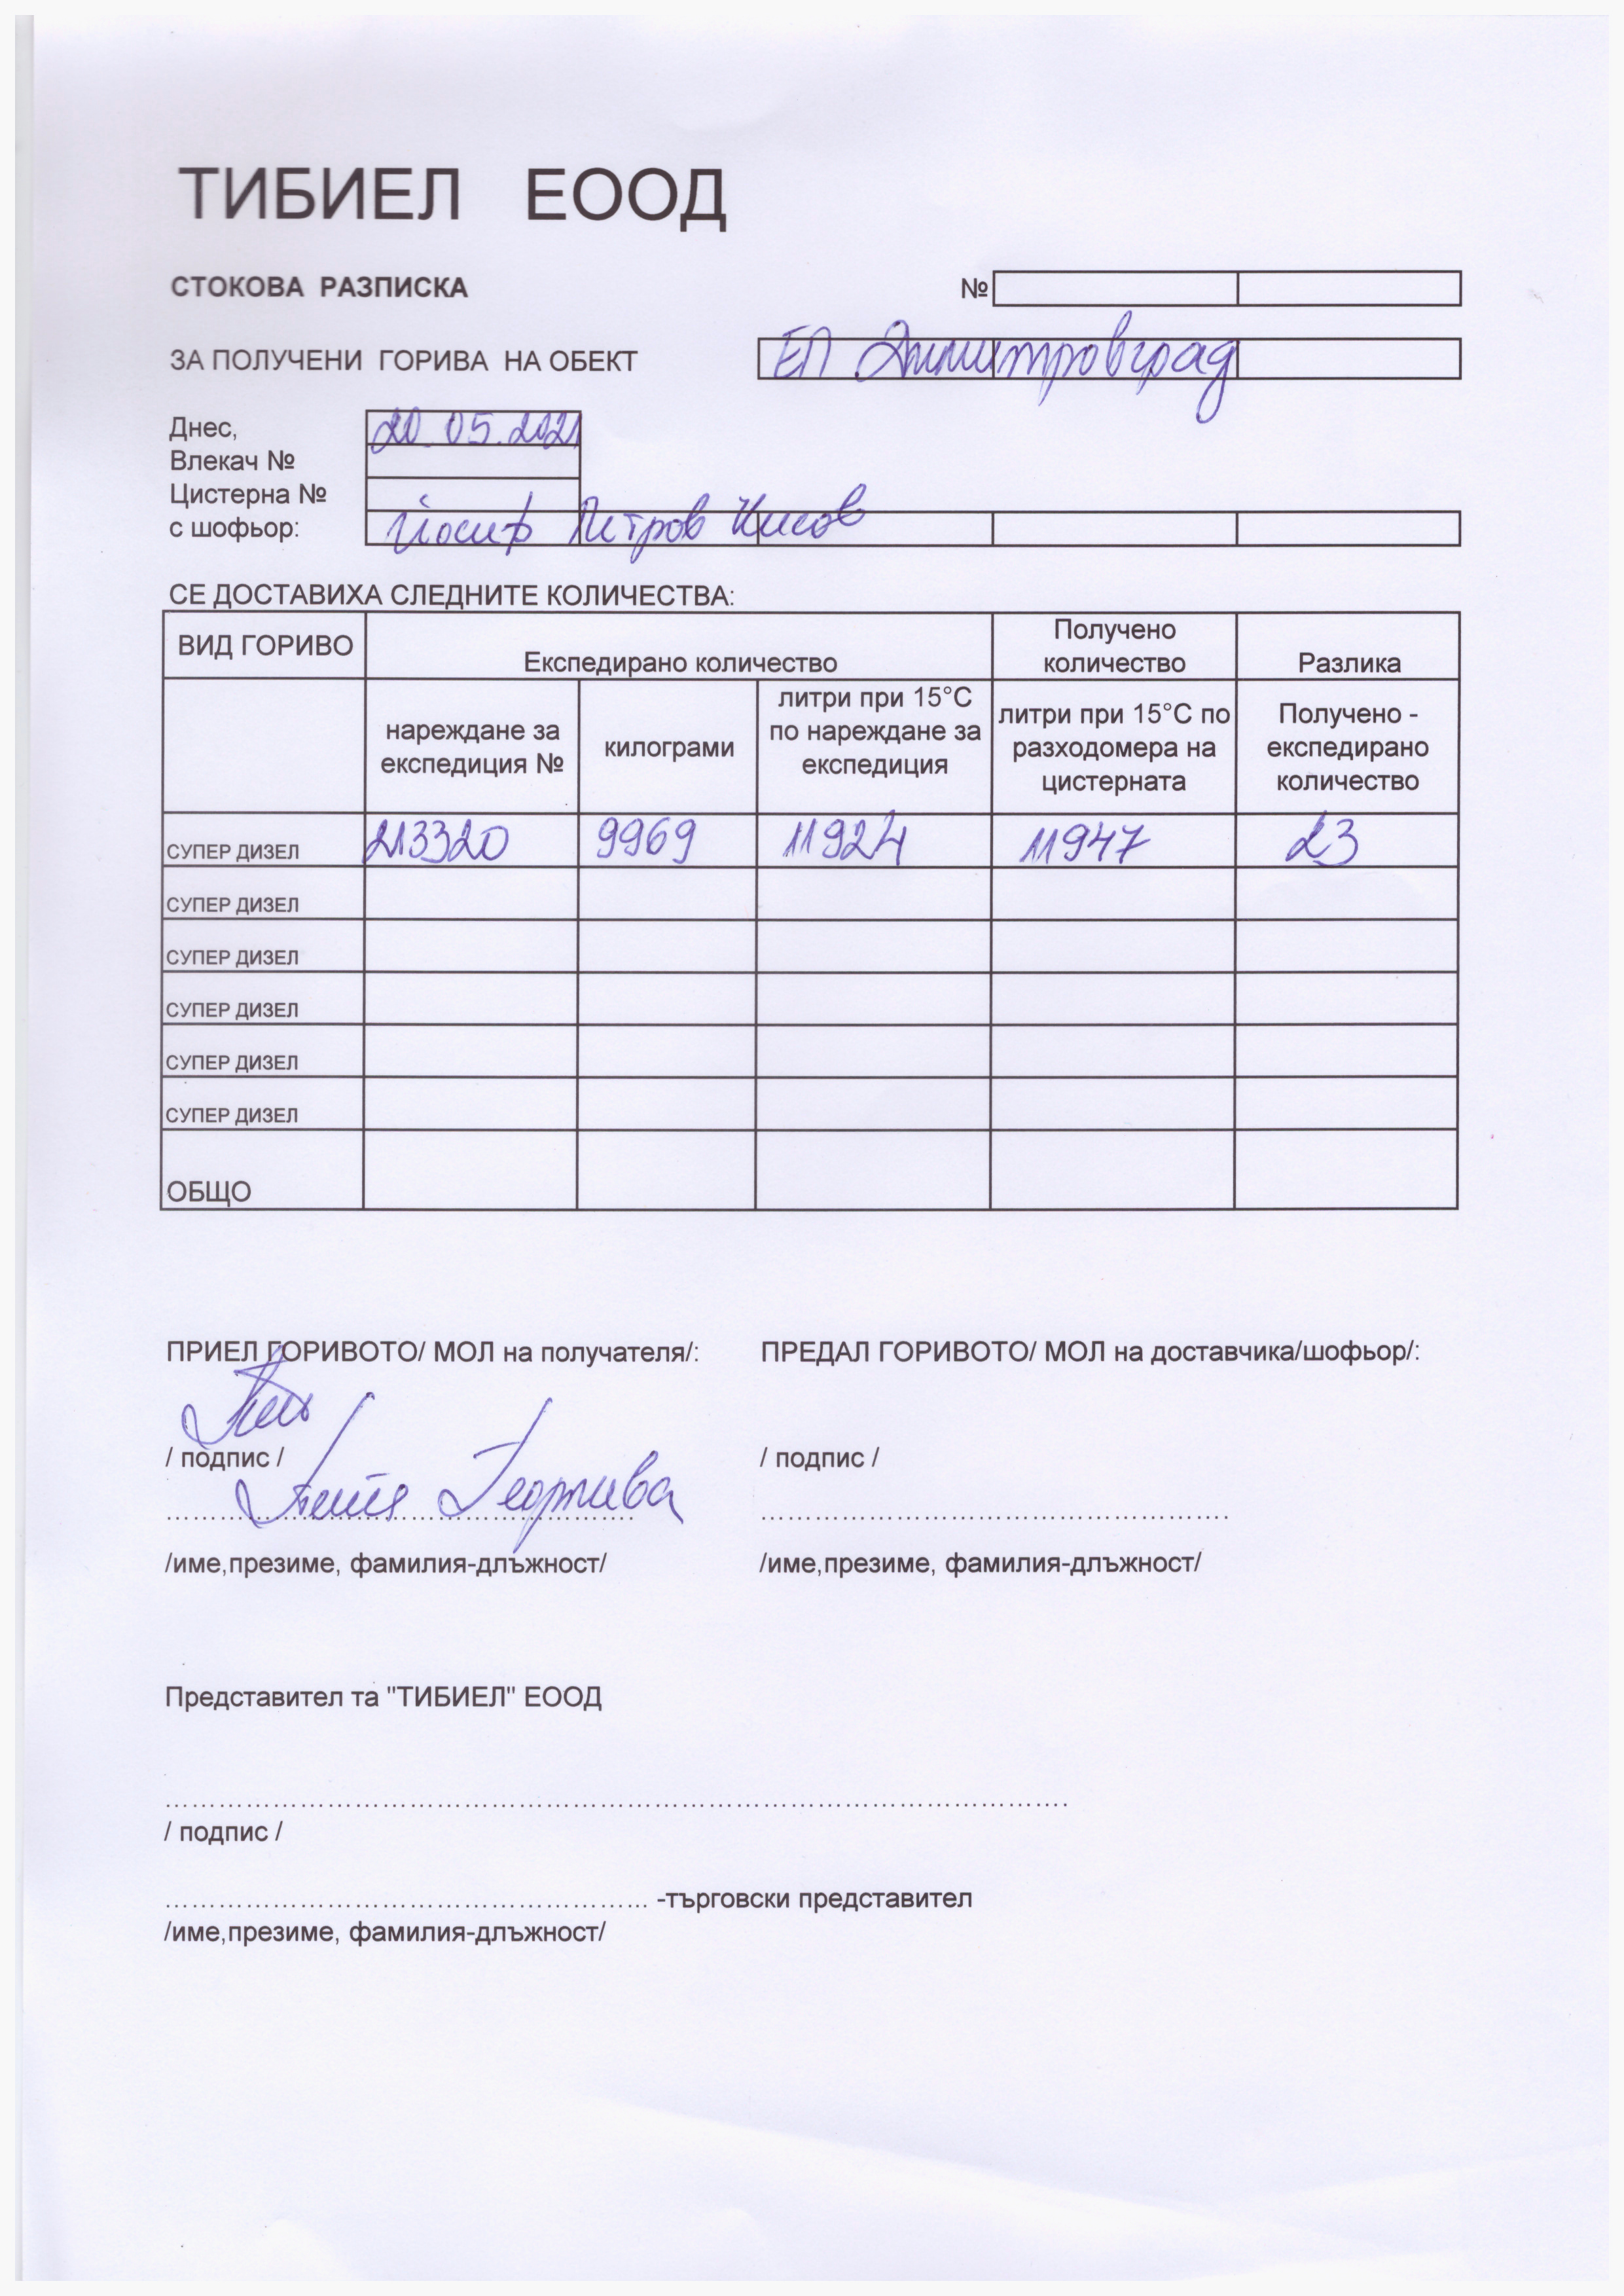 ТИБИЕЛ ЕООД
СТОКОВА РАЗПИСКА №
ЗА ПОЛУЧЕНИ ГОРИВА НА ОБЕКТ ЕП Димитровград
Днес, 20.05.2021
Влекач №
Цистерна №
с шофьор: Йосиф Петров Кисов
СЕ ДОСТАВИХА СЛЕДНИТЕ КОЛИЧЕСТВА:
ВИД ГОРИВО Експедирано количество Получено количество Разлика
нареждане за експедиция № килограми литри при 15°С по нареждане за експедиция литри при 15°С по разходомера на цистерната Получено - експедирано количество
СУПЕР ДИЗЕЛ 213320 9969 11924 11947 23
СУПЕР ДИЗЕЛ
СУПЕР ДИЗЕЛ
СУПЕР ДИЗЕЛ
СУПЕР ДИЗЕЛ
СУПЕР ДИЗЕЛ
ОБЩО
ПРИЕЛ ГОРИВОТО/ МОЛ на получателя/: ПРЕДАЛ ГОРИВОТО/ МОЛ на доставчика/шофьор/:
/ подпис / / подпис /
Георгиева
/име,презиме, фамилия-длъжност/ /име,презиме, фамилия-длъжност/
Представител та "ТИБИЕЛ" ЕООД
/ подпис /
-търговски представител
/име,презиме, фамилия-длъжност/